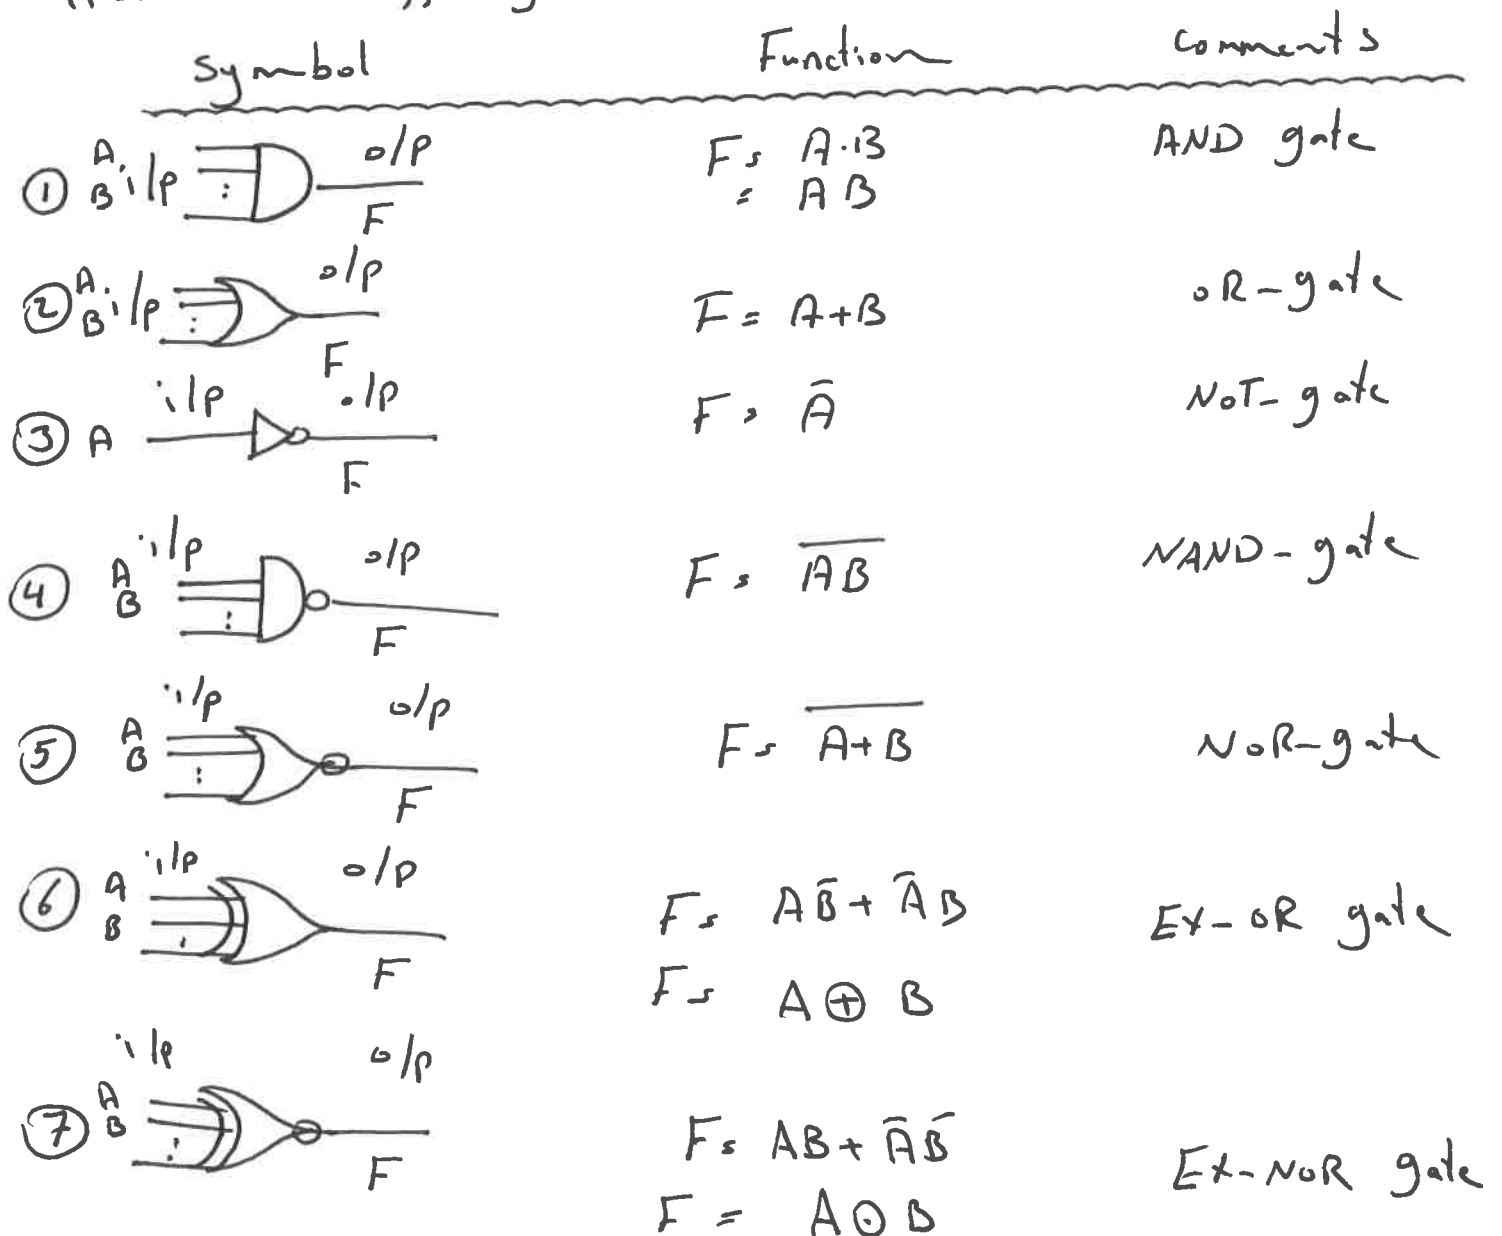 Symbol Function Comments
① A B i/p o/p F F = A.B = AB AND gate
② A B i/p o/p F F = A+B OR-gate
③ A i/p o/p F F = Ā NOT-gate
④ A B i/p o/p F F = A̅B̅ NAND-gate
⑤ A B i/p o/p F F = A̅+̅B̅ NOR-gate
⑥ A B i/p o/p F F = AB̄ + ĀB EX-OR gate
F = A ⊕ B
⑦ A B i/p o/p F F = AB + ĀB̄ EX-NOR gate
F = A ⊙ B